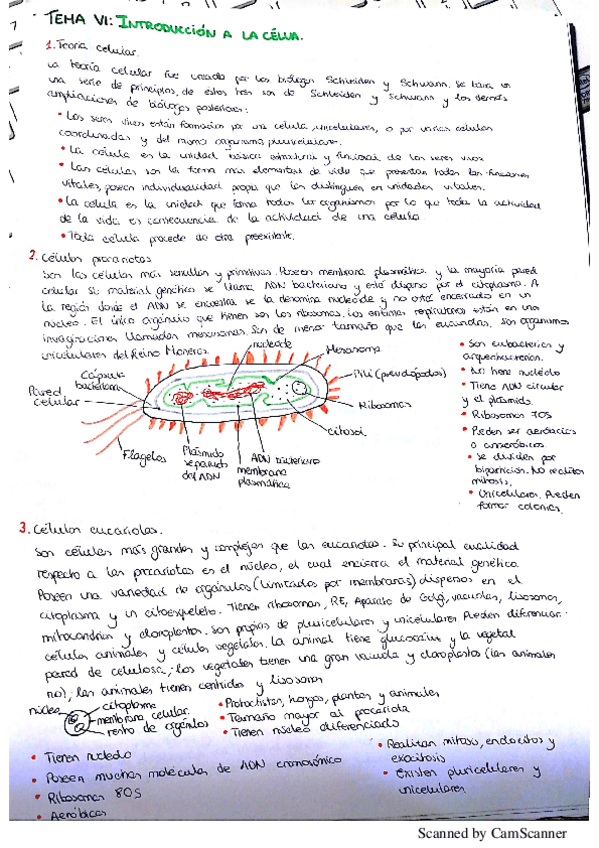 TEMA VI: INTRODUCCIÓN A LA CÉLULA.
1. Teoría celular.
La teoría celular fue creada por los biólogos Schleiden y Schwann. Se basa en
una serie de principios, de estos tres son de Schleiden y Schwann y los demás
ampliaciones de biólogos posteriores:
• Los seres vivos están formados por una célula, unicelulares, o por varias células
coordinadas y del mismo organismo, pluricelulares.
• La célula es la unidad básica estructural y funcional de los seres vivos
• Las células son la forma más elemental de vida que presentan todas las funciones
vitales, poseen individualidad propia que las distinguen en unidades vitales.
• La célula es la unidad que forma todos los organismos por lo que toda la actividad
de la vida es consecuencia de la actividad de una célula.
• Toda célula procede de otra preexistente.
2. Células procariotas
Son las células más sencillas y primitivas. Poseen membrana plasmática y la mayoría pared
celular. Su material genético se llama ADN bacteriano y está disperso por el citoplasma. A
la región donde el ADN se encuentra se la denomina nucleoide y no está encerrado en un
núcleo. El único orgánulo que tienen son los ribosomas. Las enzimas respiratorias están en unas
invaginaciones llamadas mesosomas. Son de menor tamaño que las eucariotas. Son organismos
unicelulares del Reino Moneras.
nucleoide
Mesosoma
Cápsula
bacteriana
Pared
celular
Pili (pseudópodos)
Ribosomas
citosol
Flagelos
Plásmido
separado
del ADN
ADN bacteriano
membrana
plasmática
• Son eubacterias y
arqueobacterias.
• No tiene nucleolo
• Tiene ADN circular
y el plásmido.
• Ribosomas 70S
• Pueden ser aeróbicos
o anaeróbicos
• Se dividen por
bipartición. No realizan
mitosis.
• Unicelulares. Pueden
formar colonias.
3. Células eucariotas.
Son células más grandes y complejas que las eucariotas. Su principal cualidad
respecto a las procariotas es el núcleo, el cual encierra el material genético.
Poseen una variedad de orgánulos (limitados por membranas) dispersos en el
citoplasma y un citoesqueleto. Tienen ribosomas, RE, Aparato de Golgi, vacuolas, lisosomas,
mitocondrias y cloroplastos. Son propias de pluricelulares y unicelulares. Pueden diferenciar
células animales y células vegetales. La animal tiene glucocálix y la vegetal
pared de celulosa; los vegetales tienen una gran vacuola y cloroplastos (las animales
no); las animales tienen centriolo y lisosomas
núcleo
citoplasma
membrana celular
resto de orgánulos
• Protoctistas, hongos, plantas y animales
• Tamaño mayor al procariota
• Tienen núcleo diferenciado
• Tienen nucleolo
• Poseen muchas moléculas de ADN cromosómico
• Ribosomas 80S
• Aeróbicas
• Realizan mitosis, endocitosis y
exocitosis
• Existen pluricelulares y
unicelulares
Scanned by CamScanner